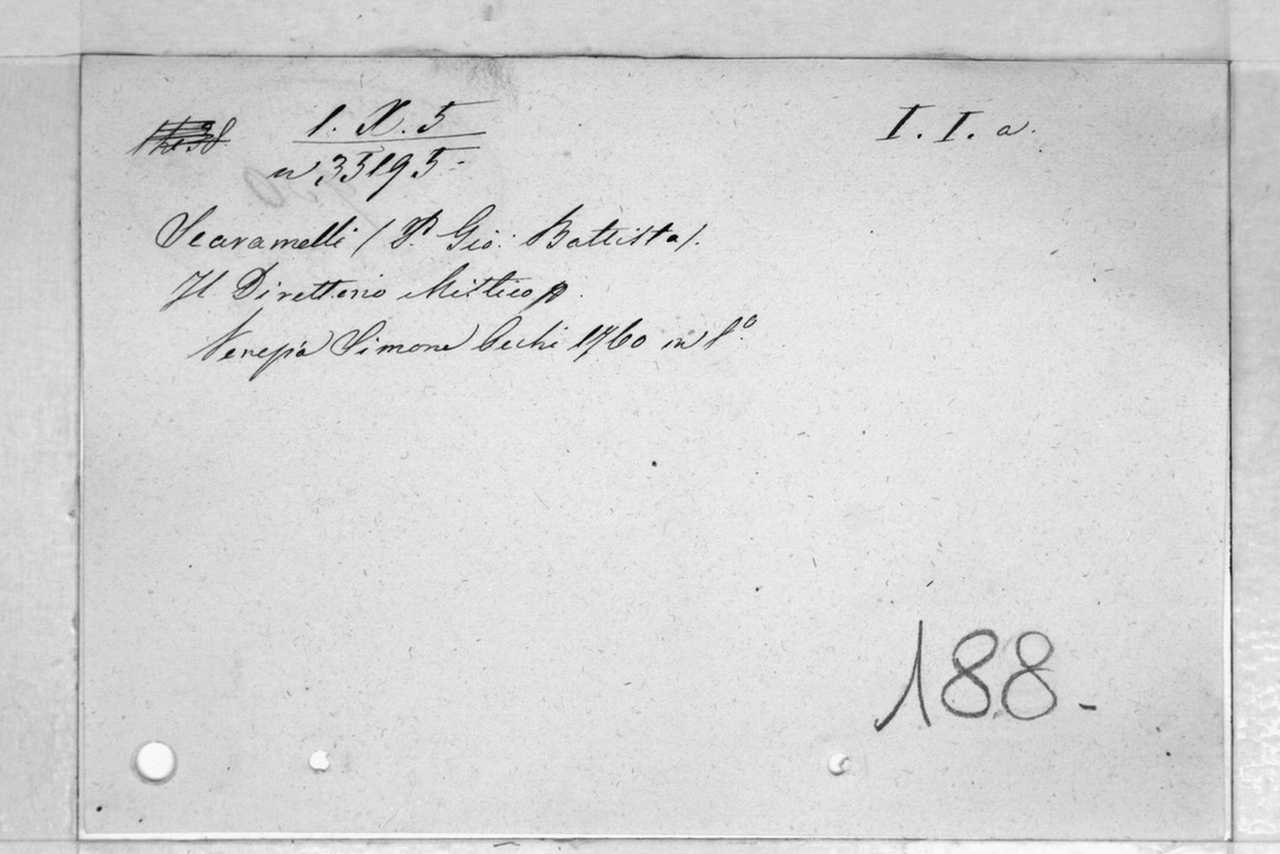 1. X. 5 I. I. a.
n 33195-
Scaramelli (P. Gio: Battista).
Il Direttorio Mistico
Venezia Simone Occhi 1760 in 8º
188-